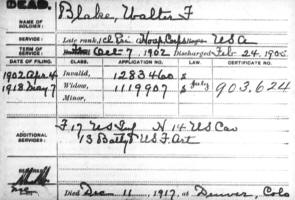 DEAD.
NAME OF SOLDIER: Blake, Walter F
SERVICE: Late rank, Hosp Corps USA
TERM OF SERVICE: Oct 7, 1902 Discharged Feb 24, 1905
DATE OF FILING. CLASS. APPLICATION NO. LAW. CERTIFICATE NO.
1902 Apr 4 Invalid, 1283460 s
1918 May 7 Widow, 1119907 s July 903.624
Minor,
ADDITIONAL SERVICES: F 17 US Inf H 14 US Cav
13 Batty US F Art
REMARKS:
Died Dec 11, 1917, at Denver, Colo